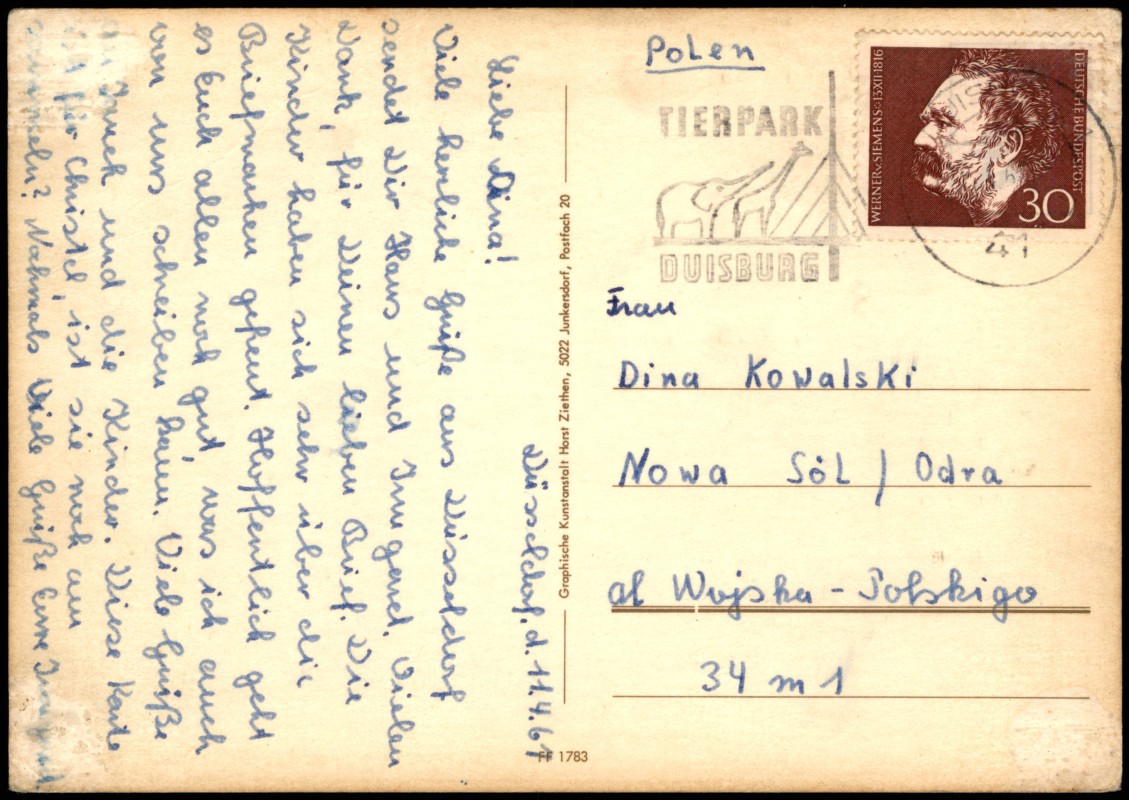 Polen
TIERPARK
DUISBURG
WERNER v. SIEMENS · 13·XII·1816
DEUTSCHE BUNDESPOST
30
41
Frau
Dina Kowalski
Nowa Sól / Odra
al Wojska - Polskigo
34 m 1
Graphische Kunstanstalt Horst Ziethen, 5022 Junkersdorf, Postfach 20
FF 1783
Düsseldorf, d. 11.4.67
Liebe Dina!
Viele herzliche Grüße aus Düsseldorf
sendet Dir Hans und Irmgard. Vielen
Dank, für Deinen lieben Brief. Die
Kinder haben sich sehr über die
Briefmarken gefreut. Hoffentlich geht
es Euch allen noch gut, was ich auch
von uns schreiben kann. Viele Grüße
an und die Kinder. Diese Karte
ist für Christel, ist sie noch am
sammeln? Nochmals Viele Grüße Eure Irmgard.